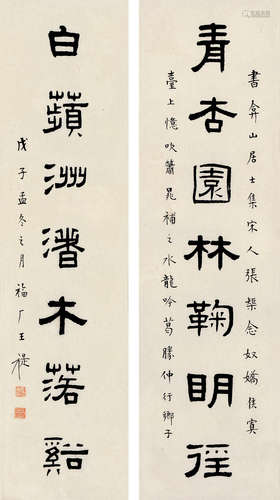 書弇山居士集宋人張榘念奴嬌侯寘
青杏園林鞠明徑
臺上憶吹簫晁補之水龍吟葛勝仲行鄉子
白蘋洲渚木落谿
戊子孟冬之月福厂王禔